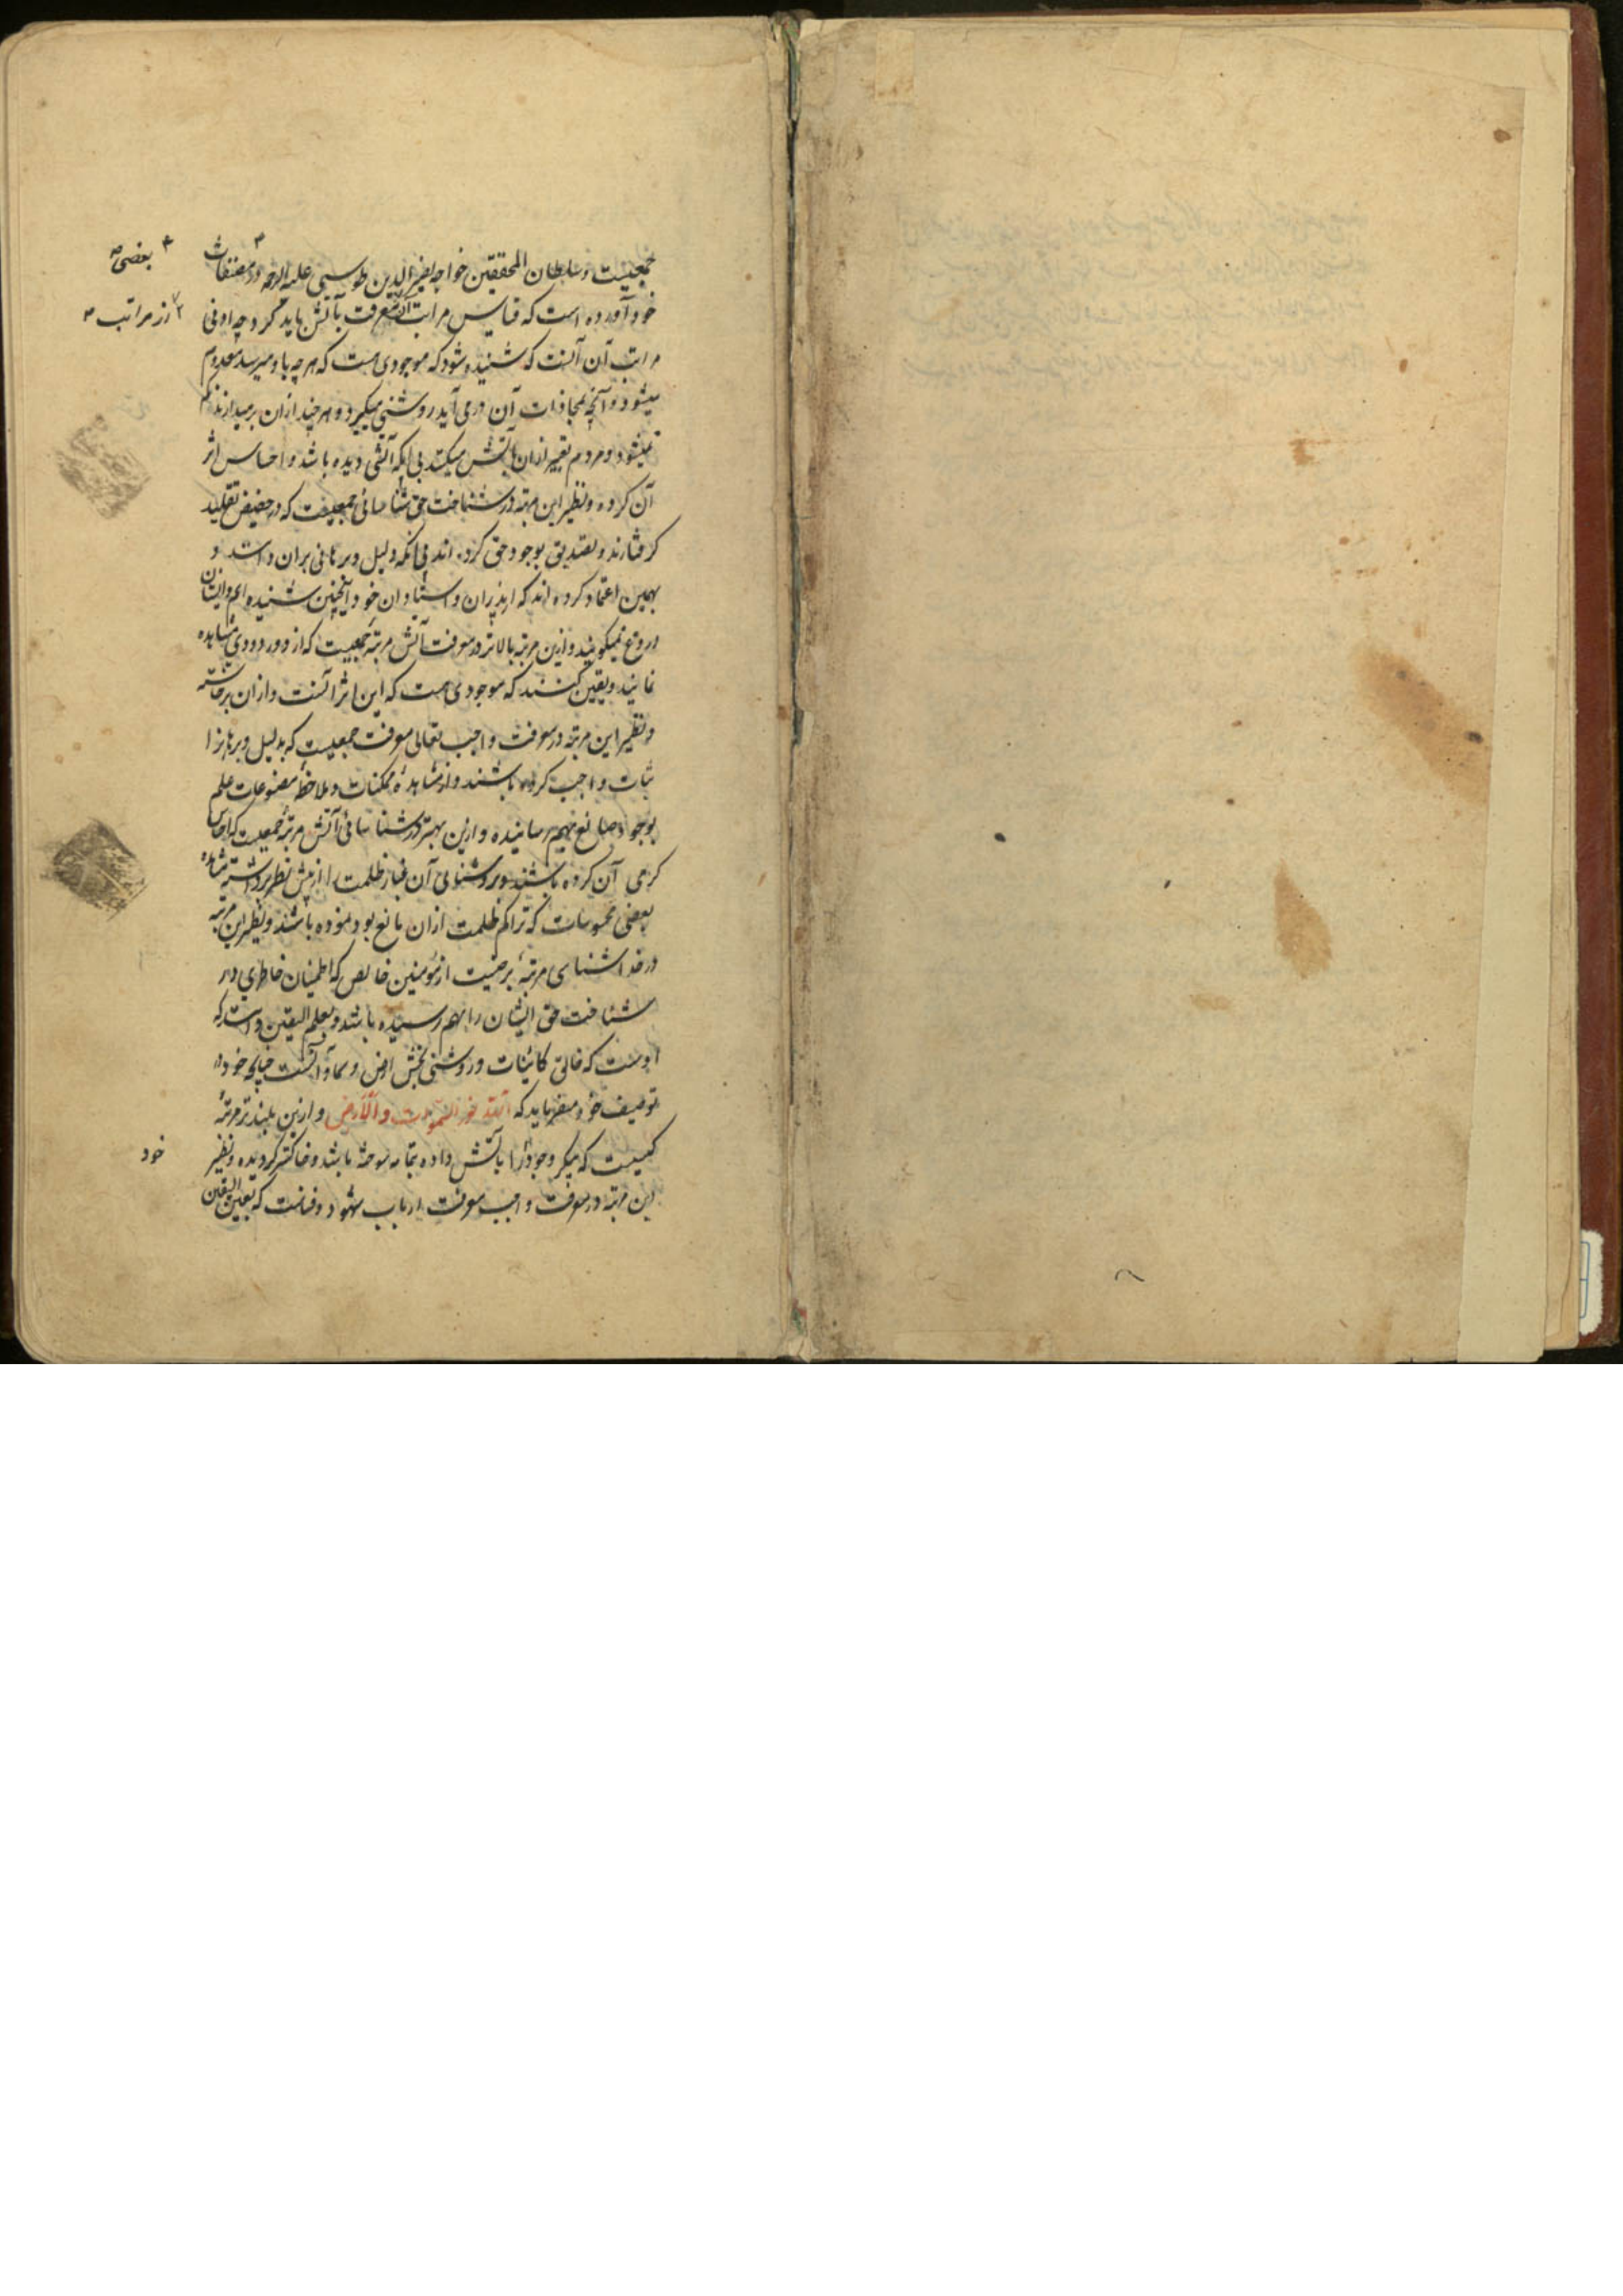 جمعیست و سلطان المحققین خواجه نصیر الدین طوسی علیه الرحمه در مصنفات
بعضی
خود آورده است که قیاس مراتب آن معرفت بآتش باید کرد چه ادنی
از مراتب
مراتب آن آنست که شنیده شود که موجودی هست که هر چه باو میرسد معدوم
میشود و آنچه بمحاذات آن در می آید روشنی میگیرد و هر چند ازان برمیدارند کم
نمیشود و مردم تعبیر ازان بآتش میکنند بی آنکه آتشی دیده باشد و احساس اثر
آن کرده و نظیر این مرتبه در شناخت حق شناسائی جمعیست که در حضیض تقلید
گرفتارند و تصدیق بوجود حق کرده اند بی آنکه دلیل و برهانی بران داشته و
بهمین اعتماد کرده اند که از پدران و استادان خود اینچنین شنیده ایم و ایشان
دروغ نمیگویند و ازین مرتبه بالاتر در معرفت آتش مرتبه جمعیست که از دور دودی مشاهده
نمایند و یقین کنند که موجودی هست که این اثر آنست و ازان برخاسته
و نظیر این مرتبه در معرفت واجب تعالی معرفت جمعیست که بدلیل و برهان ا
ثبات واجب کرده باشند و از مشاهدهٔ ممکنات و ملاحظهٔ مصنوعات علم
بوجود صانع بهم رسانیده و ازین بهتر در شناسائی آتش مرتبهٔ جمعیست که احساس
گرمی آن کرده باشند و بروشنای آن غبار ظلمت را از پیش نظر برداشته مشاهده
بعضی محسوسات که تراکم ظلمت ازان مانع بود نموده باشند و نظیر این مرتبه
در خدا شناسی مرتبهٔ برخیست از مؤمنین خالص که اطمینان خاطری در
شناخت حق ایشان را بهم رسیده باشد و بعلم الیقین دانسته که
اوست که خالق کائنات و روشنی بخش ارض و سماوات است چنانچه خود در
توصیف خود میفرماید که الله نور السموات والارض و ازین بلندتر مرتبهٔ
کسیست که پیکر وجود را بآتش داده بتمامه سوخته باشد و خاکستر گردیده و نظیر
خود
این مرتبه در معرفت واجب معرفت ارباب شهود و فناست که بعین الیقین